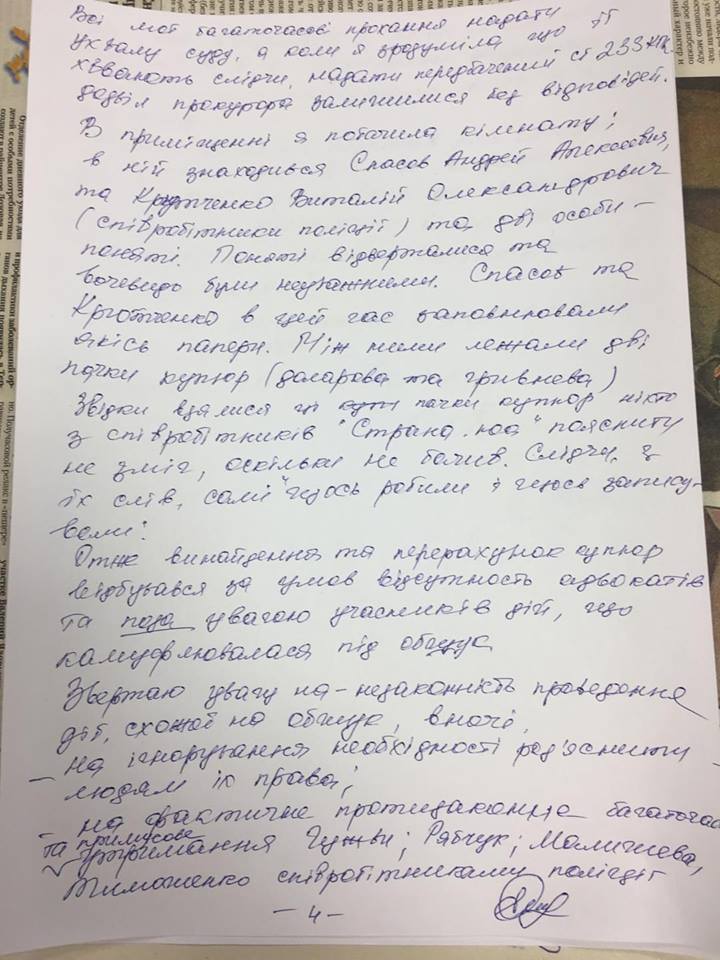 Всі мої багаточасові прохання надати
ухвалу суду, а коли я зрозуміла що її
ховають слідчі, надати передбачений ст 233 КПК
дозвіл прокурора залишилися без відповідей.
В приміщенні я побачила кімнату;
в ній знаходився Спасов Андрей Алексеевич,
та Кротченко Виталій Олександрович
(співробітники поліції) та дві особи –
поняті. Поняті відвертались та
вочевидь були неуважними. Спасов та
Кротченко в цей час заповнювали
якісь папери. Між ними лежали дві
пачки купюр (доларова та гривнева)
Звідки взялися ці пачки купюр ніхто
з співробітників "Страна.юа" пояснити
не зміг, оскільки не бачив. Слідчі, з
їх слів, самі "щось робили і щось запису-
вали".
Отже винайдення та перерахунок купюр
відбувався за умов відсутность адвокатів
та поза увагою учасників дій, що
камуфлювалася під обшук
Звертаю увагу на – незаконність проведення
дії, схожої на обшук, вночі,
– на ігнорування необхідності роз'яснити
людям їх права;
– на фактичне протизаконне багаточас
та примусове
утримання Гужви; Рябчук; Малишева,
Тимошенко співробітниками поліції
– 4 –
отделение дневного ухода для
детей с особыми потребностями
и профилактики заболеваний ор-
ганов дыхания